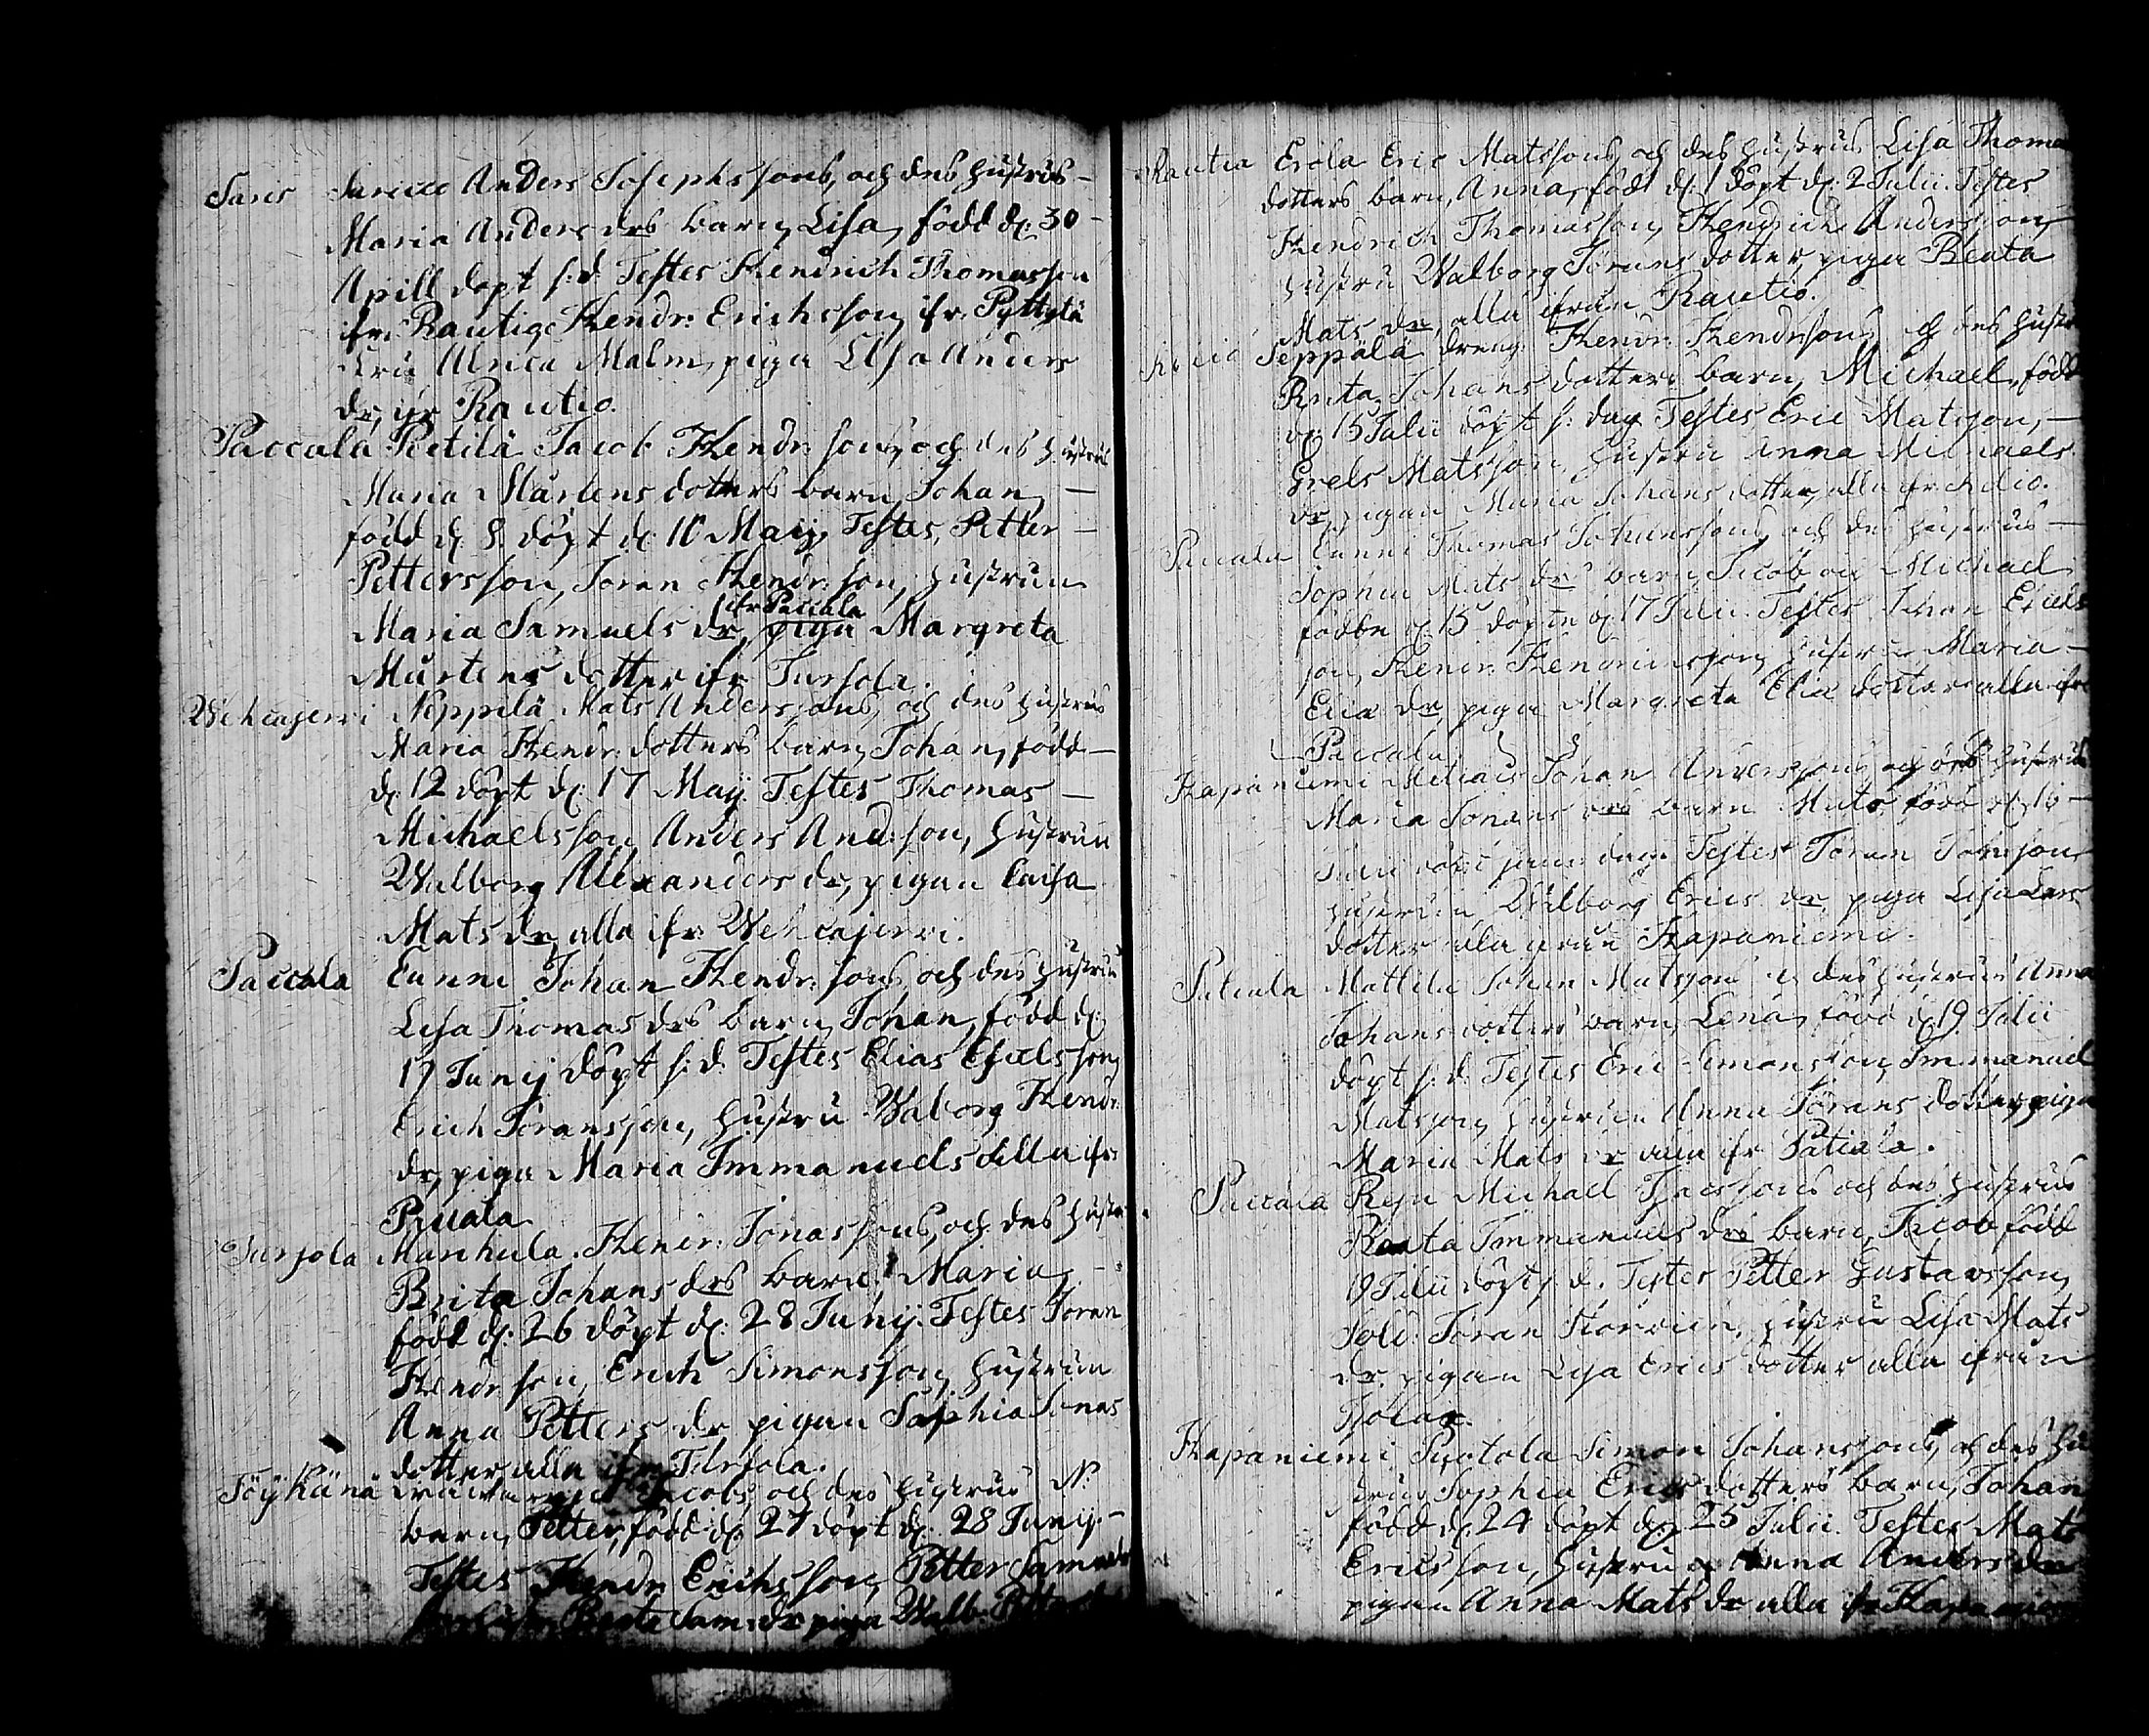 Saris Anders Josephssons, och des hustrus
Maria Anders drs barn, Lisa, född d: 30
Aprill döpt s:d. Testes Hendrich Thomasson
ifr. Rautio, Hendr: Erichsson ifr. Pyttylä
Ulrica Malm, piga Lisa Anders
dr, ifr Rautio.
Paccala Pietilä Jacob Hendr:sons, och des hustrus
Maria Mårtens dotters barn, Johan,
född d. 8. döpt d. 10 Maij, Testes, Petter
Pettersson, Jöran Hendr:son, hustrun
ifr Paccala
Maria Samuels dr, piga Margreta
Mårtens dotter ifr Tursola.
Wehcajerwi Neppilä Mats Anderssons, och des hustrus
Maria Hendr: dotters barn, Johan, född
d: 12 döpt d: 17 Maij. Testes Thomas
Michaelsson, Anders And:son, hustrun
Walborg Alexanders dr, pigan Caisa
Mats dr, alla ifr. Wehcajerwi.
Paccala Eunni Johan Hendr:sons, och des hustrus
Lisa Thomas drs barn, Johan, född d:
17 Junij döpt s:d. Testes Elias Eskelsson,
Erich Jöransson, hustru Waborg Hendr:
dr, piga Maria Immanuels alla ifr.
Paccala
Tursola Manhula Hendr: Jonassons, och des hustrus
Brita Johans drs barn, Maria,
född d: 26 döpt d: 28 Junij. Testes Jöran
Hendr:son, Erich Simonsson, hustrun
Anna Petters dr, pigan Sophia Jonas
dotter alla ifr Tursola.
Töykänä Jacobs, och des hustrus N.
barn, Petter, född d: 27 döpt d: 28 Junij.
Testes Hendr: Erichsson, Petter Samuels
Beata Sam: dr piga Walb:
Rautio Erola Eric Matssons, och des hustrus Lisa Thomas
dotters barn, Anna, född d: 1 döpt d: 2 Julii. Testes
Hendrich Thomasson, Hendrich Andersson,
hustru Walborg Jörans dotter, piga Beata
Mats dr, alla ifrån Rautio.
Seppälä dreng Hendr: Hendrsons, och des hustrus
Johans dotters barn, Michael, född
d: 15 Julii döpt s: dag Testes Eric Matsson,
Grels Matsson, hustru Anna Michaels
dr, pigan Maria Johans dotter, alla ifr
Paccala Eunni Thomas Johanssons och des hustrus
Sophia Mats drs barn, Jacob och Michael
födde d: 15 döpte d: 17 Julii. Testes Johan Eskels
son, Hendr: Hendricsson, hustrun Maria
Elia dr, piga Margreta Elia dotter alla ifr
Paccala
Hapaniemi Johan Anderssons, och des hustrus
Maria Johans drs barn Mats, född d:
Julii döpt samma dag. Testes Jöran
hustrun Walborg Erics dr, piga Lisa Lars
dotter alla ifrån Hapaniemi.
Mattila Johan Matssons och des hustrus Anna
Johans dotters barn, Lena, född d: 19 Julii
döpt s:d. Testes Eric Simonsson, Immanuel
Matsson, hustrun Anna Jörans dotter, piga
Maria Mats dr alla ifr
Paccala Michael och des hustrus
Beata Immanuels drs barn, Jacob född
19 Julii döpt s:d. Testes Petter Gustavsson,
Jöran hustru Lisa Mats
dr. pigan Lisa Erics dotter alla ifrån
Hapaniemi Simon Johanssons, och des hu
strus Sophia Erics dotters barn, Johan
född d: 24 döpt d: 25 Julii. Testes Mats
Ericsson, hustrun Anna Anders dr
pigan Anna Mats dr alla ifr Hapaniemi